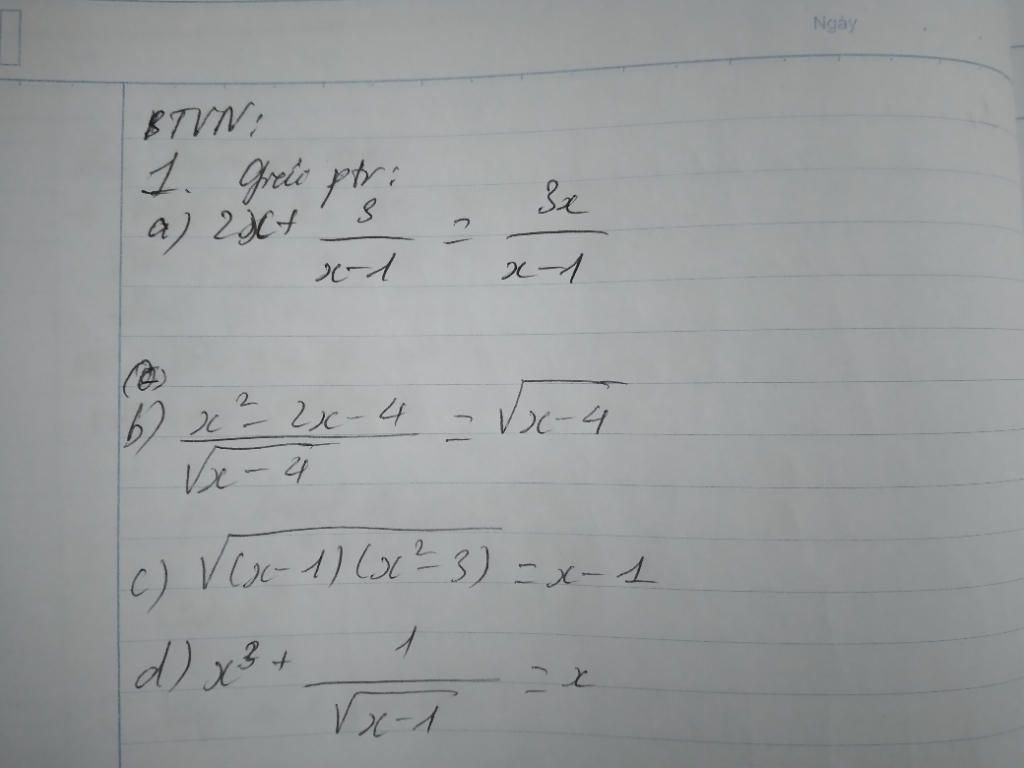 Ngày
BTVN:
1. Giải ptr:
a) 2x + 3/(x-1) = 3x/(x-1)
b) (x² - 2x - 4)/√(x-4) = √(x-4)
c) √((x-1)(x²-3)) = x-1
d) x³ + 1/√(x-1) = x